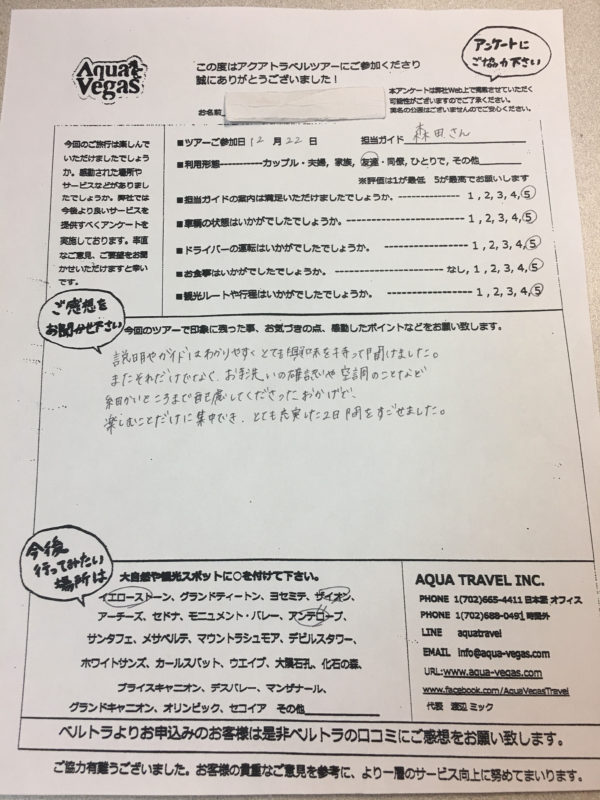 アンケートに
ご協力下さい
Aqua
Vegas
この度はアクアトラベルツアーにご参加くださり
誠にありがとうございました！
本アンケートは弊社Web上で掲載させていただく
可能性がございますのでご了承ください。
実名の公表はございませんのでご安心ください。
お名前
今回のご旅行は楽しんで
いただけましたでしょう
か。感動された場所や
サービスなどがありまし
たでしょうか。弊社では
今後より良いサービスを
提供すべくアンケートを
実施しております。率直
なご意見、ご要望をお聞
かせいただけますと幸い
です。
■ツアーご参加日 12 月 22 日 担当ガイド 森田さん
■利用形態-----------カップル・夫婦, 家族, 友達・同僚, ひとりで, その他
※評価は1が最低 5が最高でお願いします
■担当ガイドの案内は満足いただけましたでしょうか。 --------------- 1 , 2, 3, 4, 5
■車輌の状態はいかがでしたでしょうか。 -------------------- 1, 2, 3, 4, 5
■ドライバーの運転はいかがでしたでしょうか。 -------------------- 1, 2, 3, 4, 5
■お食事はいかがでしたでしょうか。 -------------------- なし, 1 , 2, 3, 4, 5
■観光ルートや行程はいかがでしたでしょうか。 ---------------- 1 , 2, 3, 4, 5
ご感想を
お聞かせ下さい
今回のツアーで印象に残った事、お気づきの点、感動したポイントなどをお願い致します。
説明やガイドはわかりやすくとても興味を持って聞けました。
またそれだけでなく、お手洗いの確認や空調のことなど
細かいところまで配慮してくださったおかげで、
楽しむことだけに集中でき、とても充実した2日間をすごせました。
今後
行ってみたい
場所は
大自然や観光スポットに○を付けて下さい。
イエローストーン、グランドティートン、ヨセミテ、ザイオン、
アーチーズ、セドナ、モニュメント・バレー、アンテロープ、
サンタフェ、メサベルテ、マウントラシュモア、デビルスタワー、
ホワイトサンズ、カールスバット、ウエイブ、大隕石孔、化石の森、
ブライスキャニオン、デスバレー、マンザナール、
グランドキャニオン、オリンピック、セコイア その他
AQUA TRAVEL INC.
PHONE 1(702)665-4411 日本語 オフィス
PHONE 1(702)688-0491 時間外
LINE aquatravel
EMAIL info@aqua-vegas.com
URL:www.aqua-vegas.com
www.facebook.com/AquaVegasTravel
代表 渡辺 ミック
ベルトラよりお申込みのお客様は是非ベルトラの口コミにご感想をお願い致します。
ご協力有難うございました。お客様の貴重なご意見を参考に、より一層のサービス向上に努めてまいります。